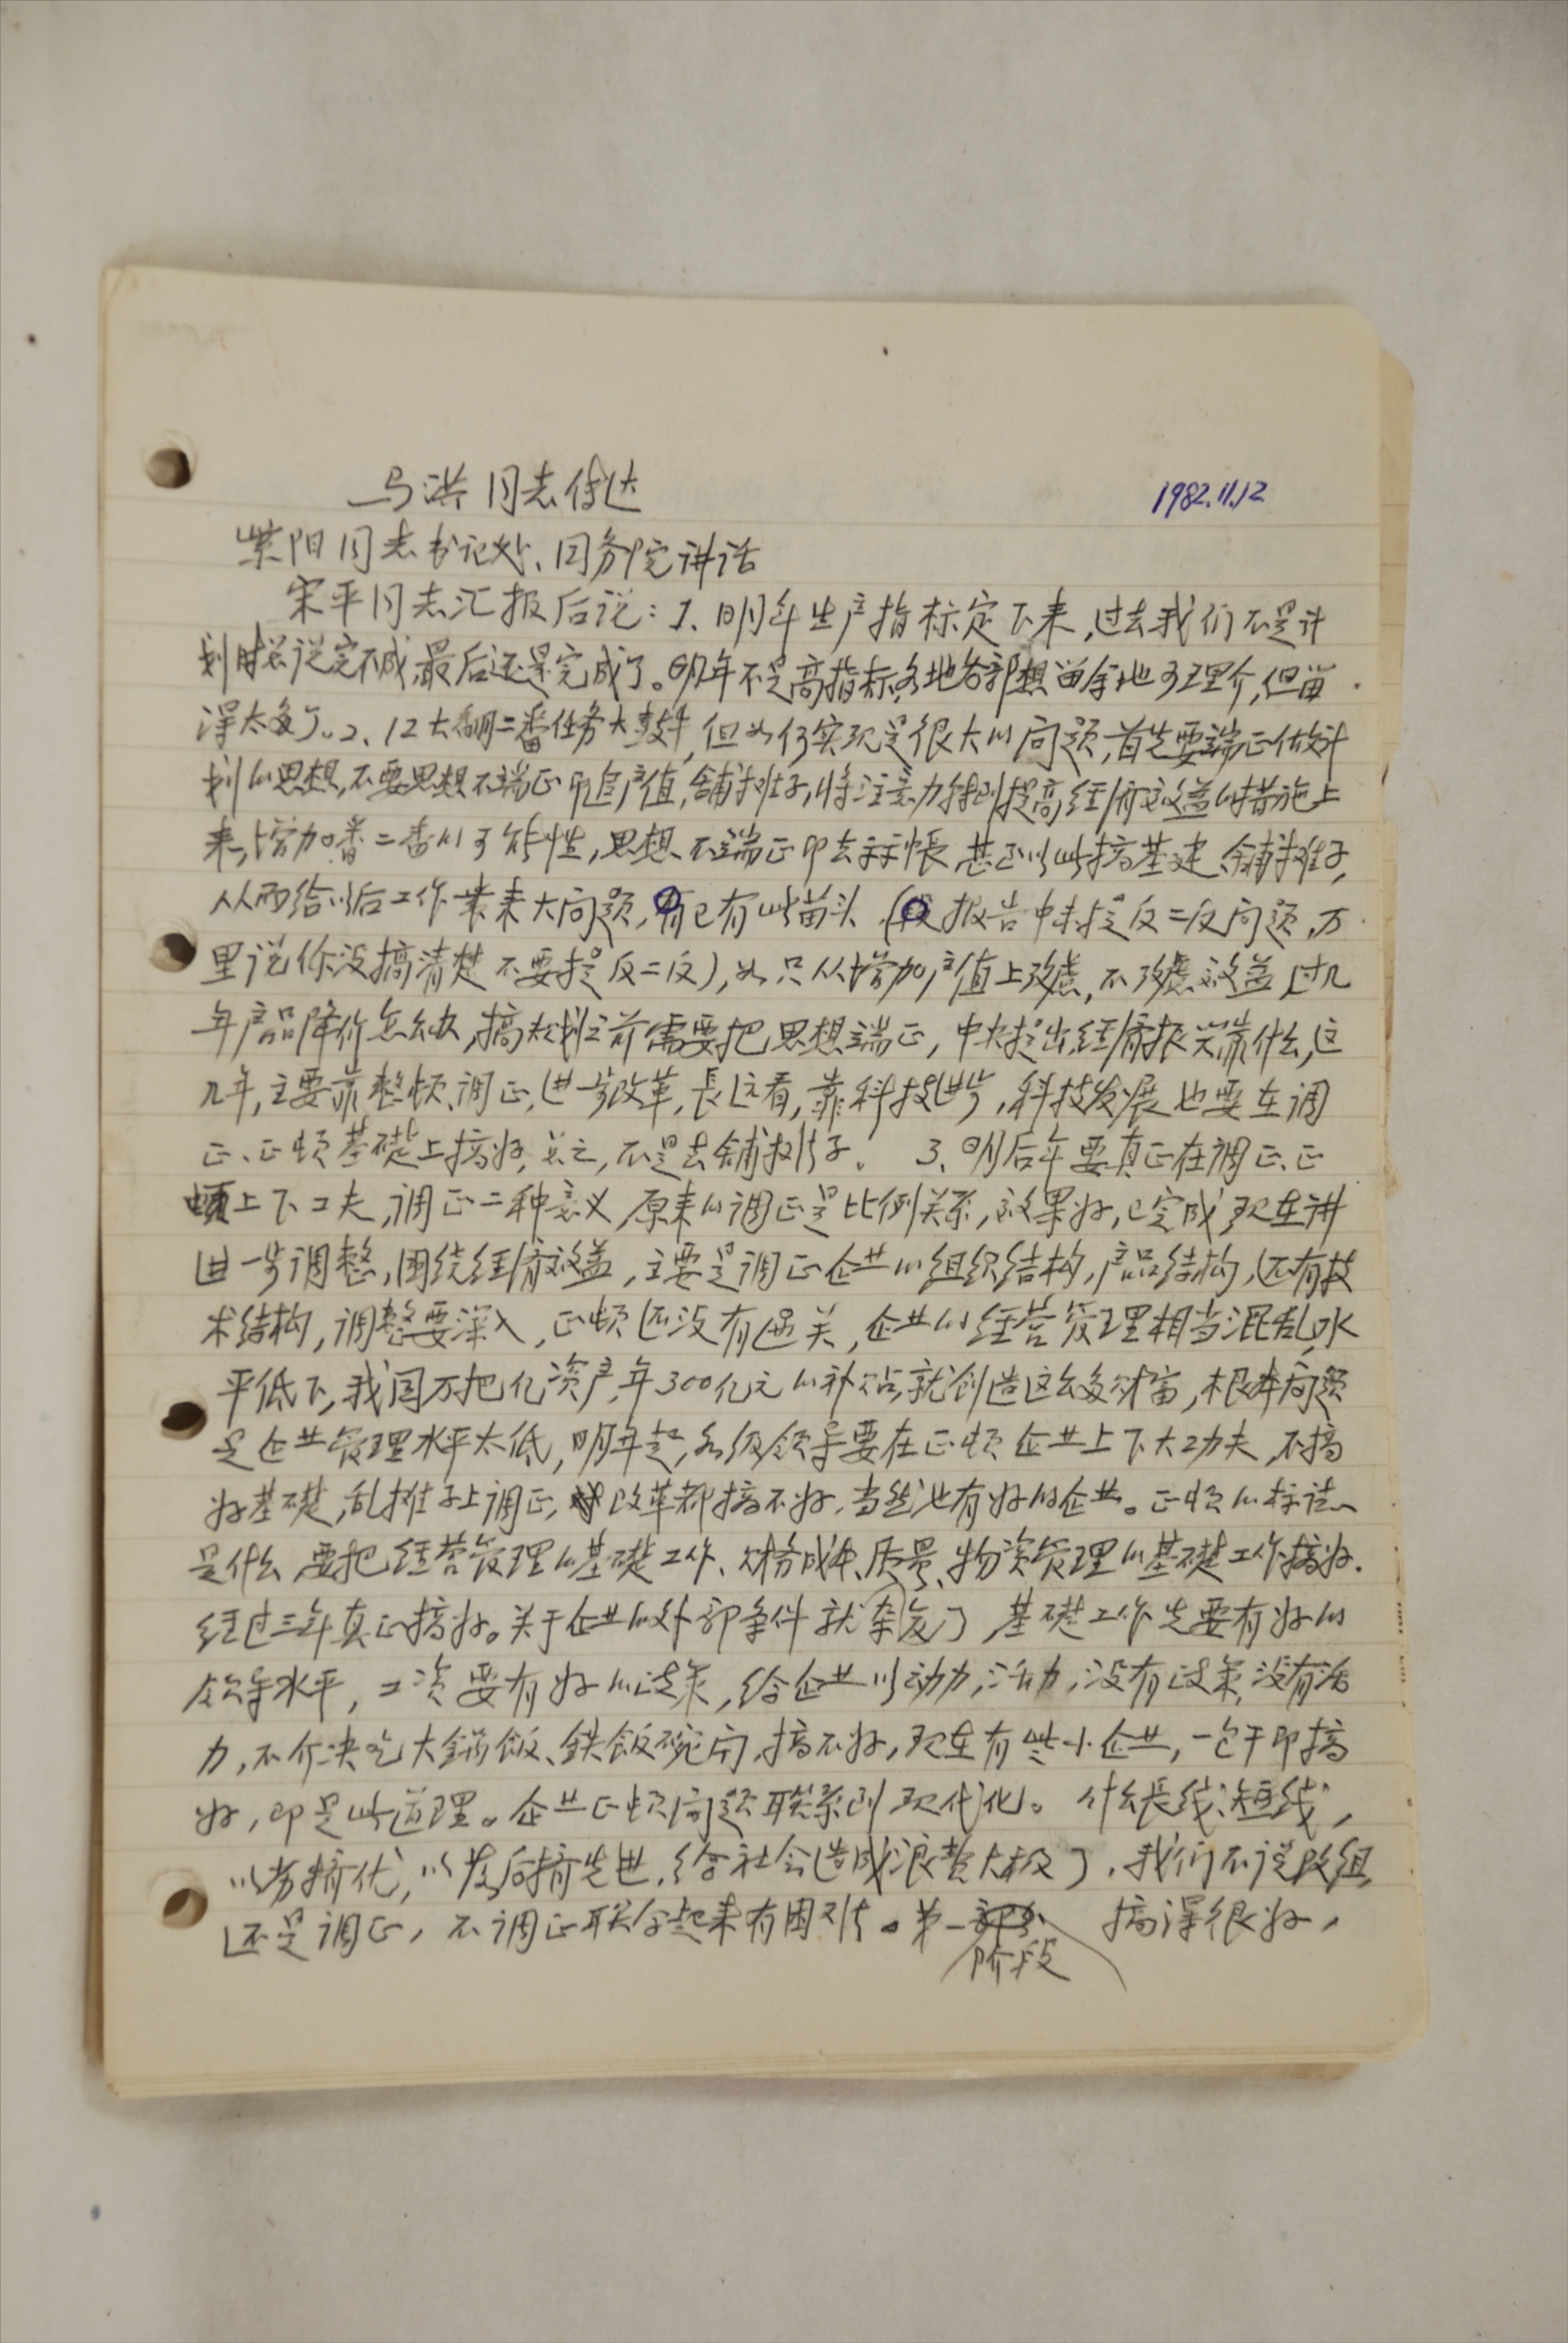 马洪同志传达
1982.11.12
紫阳同志书记处、国务院讲话
宋平同志汇报后说：1、明年生产指标定下来，过去我们不是计
划时总说完不成，最后还是完成了。明年不是高指标，各地各部想留余地可理介，但留
得太多了。2、12大翻二番任务大鼓午，但如何实现是很大的问题，首先要端正做计
划的思想，不要思想不端正即追产值，铺摊子，将注意力转到提高经济效益的措施上
来，增加番二番的可能性，思想不端正即去弄帐，甚至以此搞基建、铺摊子，
从而给以后工作带来大问题，已有此苗头（报告中未提反二反问题，万
里说你没搞清楚不要提反二反），如只从增加产值上考虑，不考虑效益，过几
年产品降价怎么办，搞规划之前需要把思想端正，中央提出经济振兴靠什么，这
几年，主要靠整顿、调正、进一步改革，長远看，靠科技进步，科技发展也要在调
正、正顿基礎上搞好，总之，不是去铺摊子。 3、明后年要真正在调正、正
顿上下工夫，调正二种意义，原来的调正是比例关系，效果好，已完成，现在讲
进一步调整，围绕经济效益，主要是调正企业的组织结构，产品结构，还有技
术结构，调整要深入，正顿还没有过关，企业的经营管理相当混乱，水
平低下，我国万把亿资产，年300亿元的补贴，就创造这么多财富，根本问题
是企业管理水平太低，明年起，各级领导要在正顿企业上下大功夫，不搞
好基礎，乱摊子上调正，改革都搞不好，当然也有好的企业。正顿的标誌
是什么，要把经营管理的基礎工作、财务成本、质量、物资管理的基礎工作搞好．
经过三年真正搞好。关于企业的外部条件就杂复了，基礎工作先要有好的
领导水平，工资要有好的政策，给企业以动力，活力，没有政策，没有活
力，不介决吃大鍋飯、鉄飯碗问，搞不好，现在有些小企业，一包干即搞
好，即是此道理。企业正顿问题联系到现代化。什么長线、短线，
以劣擠优，以落后擠先进，给社会造成浪费太极了，我们不说改组，
还是调正，不调正联合起来有困难。第一阶段搞得很好，